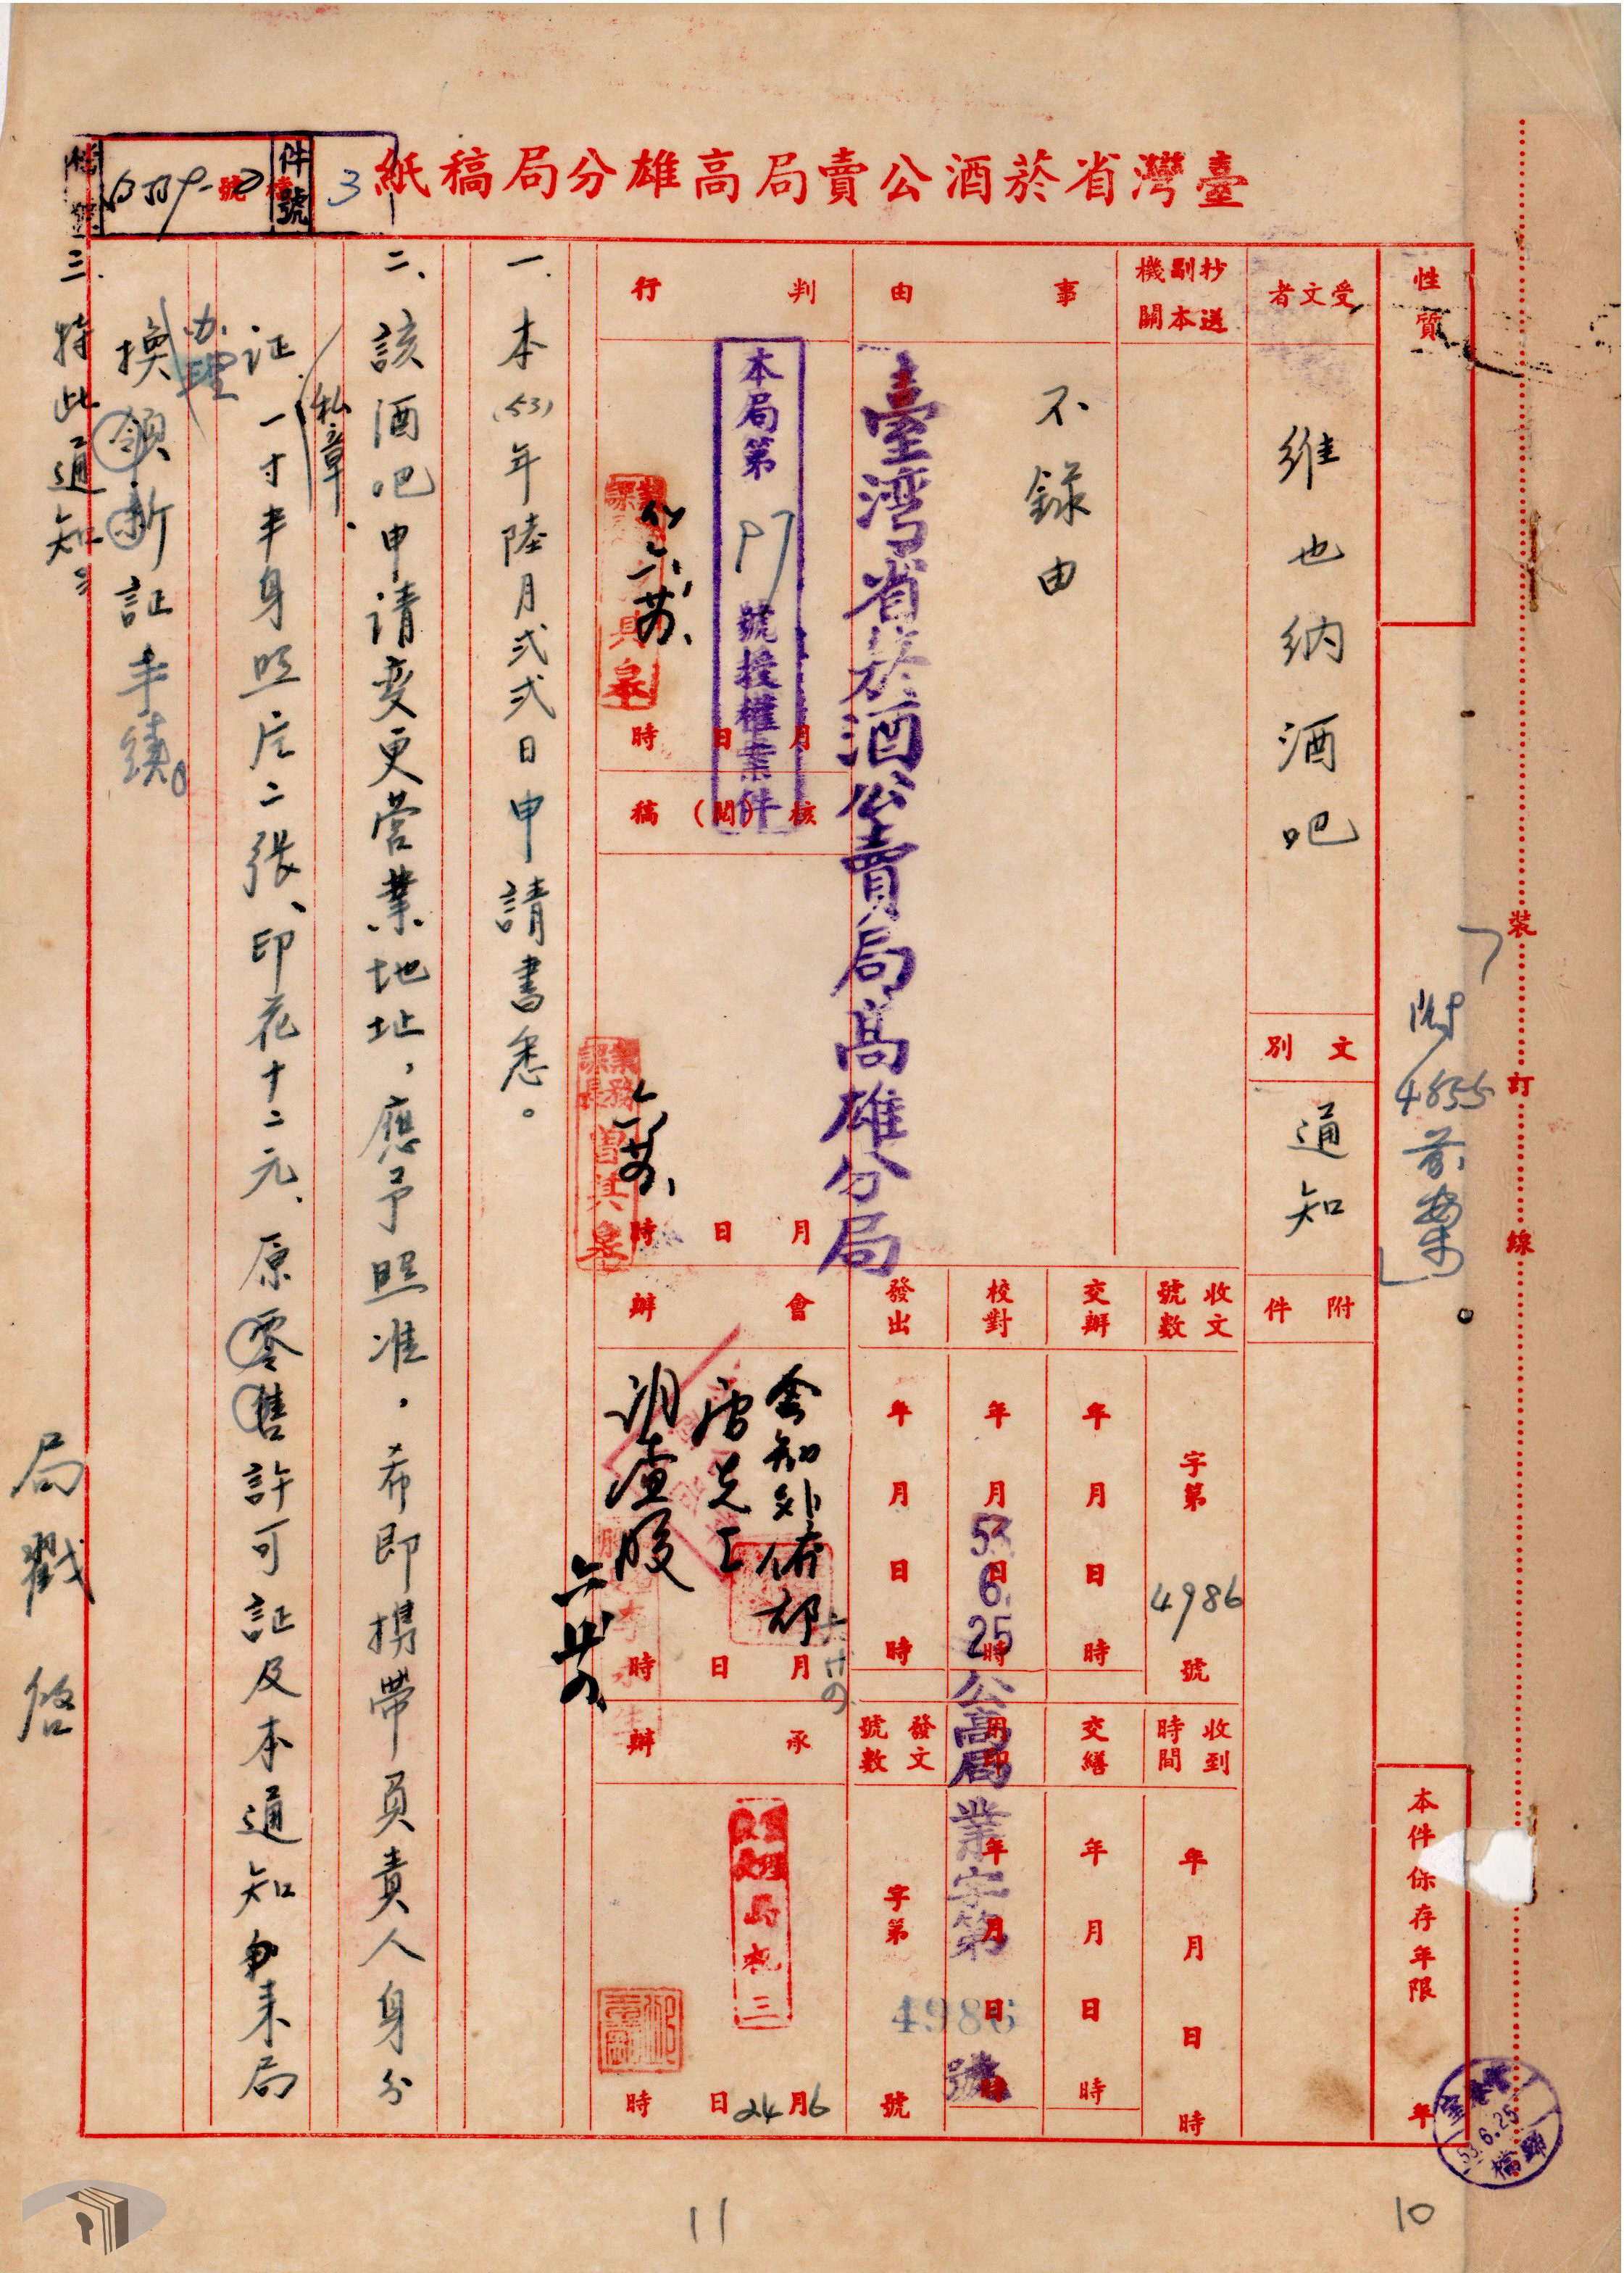 臺灣省菸酒公賣局高雄分局稿紙
檔號
號
件號
3
性質
受文者
維也納酒吧
文別
通知
附件
抄送副本機關
事由
不錄由
臺湾省菸酒公賣局高雄分局
本局第97號授權案件
判行
月日時
核(閱)稿
月日時
會辦
會知外
調查股
月日時
承辦
6月24日時
收文號數
字第4986號
收到時間
年月日時
交辦
年月日時
交繕
年月日時
校對
年月日時
用印
年月日時
發出
年月日時
發文號數
字第號
53.6.25公高局業字第4986號
一、本(53)年陸月弍弍日申請書悉。
二、該酒吧申请变更营業地址,應予照准,希即携帶負責人身分
证、私章、一寸半身照片二張、印花十二元、原零售許可証及本通知來局
办理換領新証手續。
三、特此通知。
局戳啓
附4855前案
裝訂線
本件保存年限
年
53.6.25
歸檔
11
10